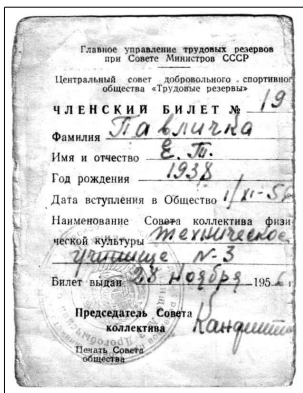 Главное управление трудовых резервов
при Совете Министров СССР
Центральный совет добровольного спортивного
общества «Трудовые резервы»
ЧЛЕНСКИЙ БИЛЕТ № 19
Фамилия Павличка
Имя и отчество Е. Т.
Год рождения 1938
Дата вступления в Общество 1/XI-56
Наименование Совета коллектива физи-
ческой культуры Техническое
училище N-3
Билет выдан 28 ноября 195
Председатель Совета
коллектива
Печать Совета
общества